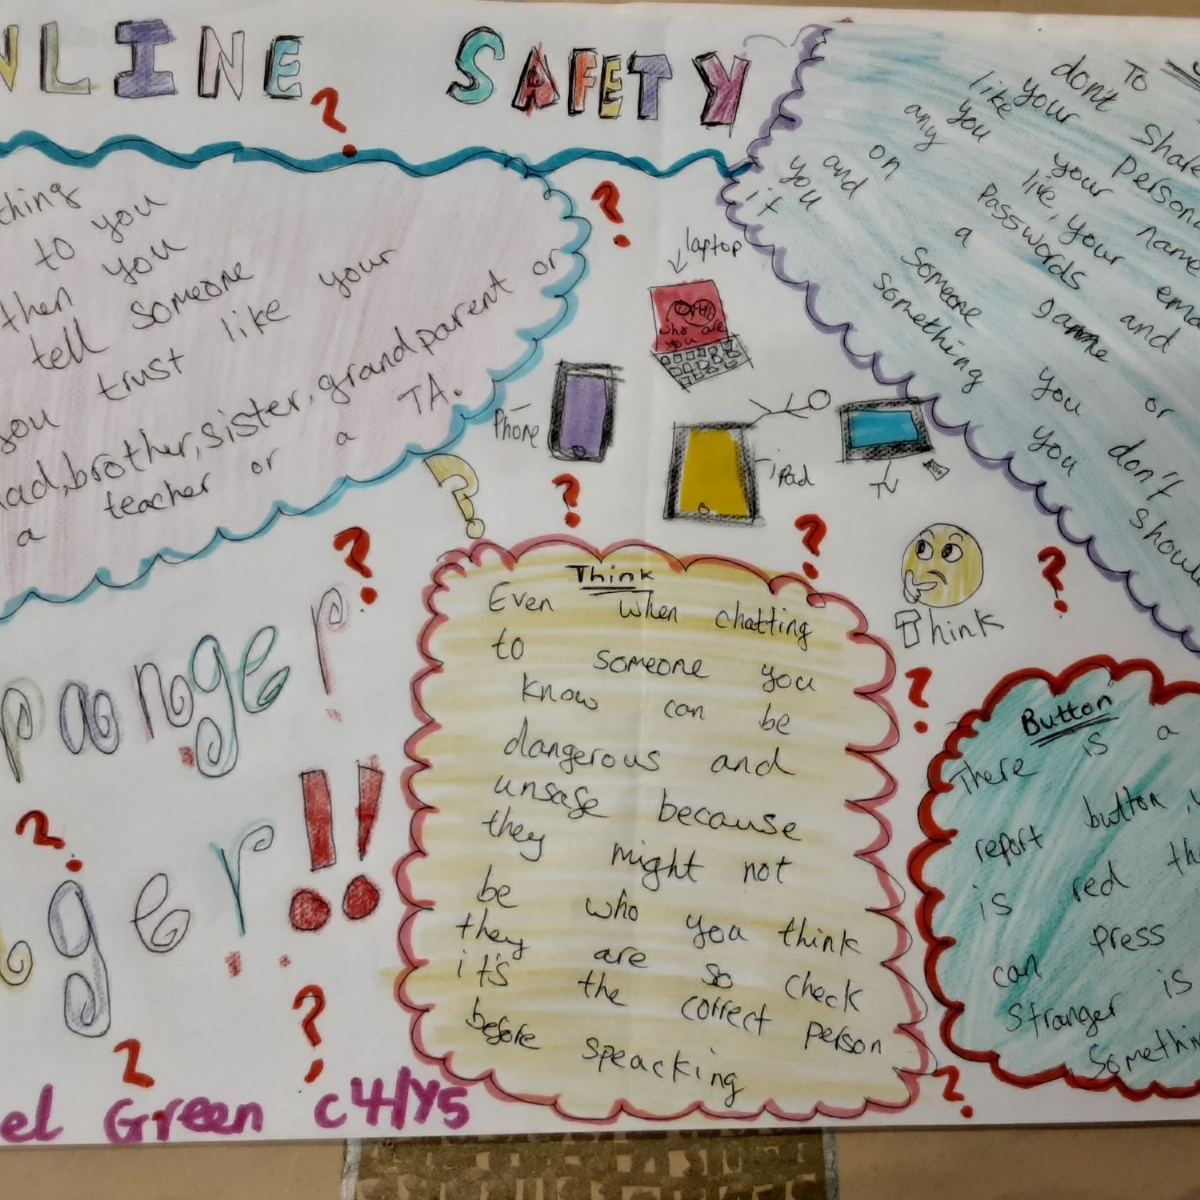 NLINE SAFETY
thing
to you
then you
tell someone
you trust like your
dad, brother, sister, grandparent or
a teacher or a TA.
To
don't share
like your persona
any you your name
on like, your ema
you and passwords and
it a game or
Someone you don't
something you shoul
laptop
who are
you
Phone
iPad
TV
Think
Think
Even when chatting
to someone you
know can be
dangerous and
unsafe because
they might not
be who you think
they are so check
it's the correct person
before speacking
Button
There is a
report button, it
is red
can press
stranger is
Somethin
ranger
ger!!
el Green C4/Y5